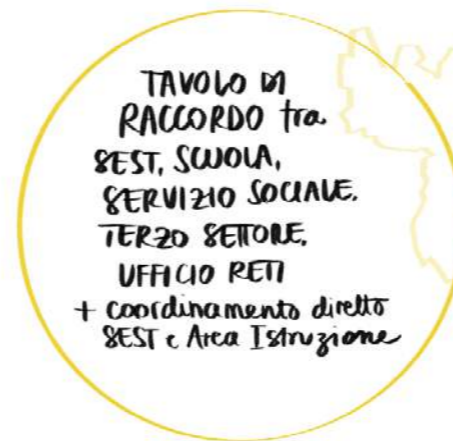 TAVOLO DI
RACCORDO tra
SEST, SCUOLA,
SERVIZIO SOCIALE,
TERZO SETTORE,
UFFICIO RETI
+ coordinamento diretto
SEST e Area Istruzione